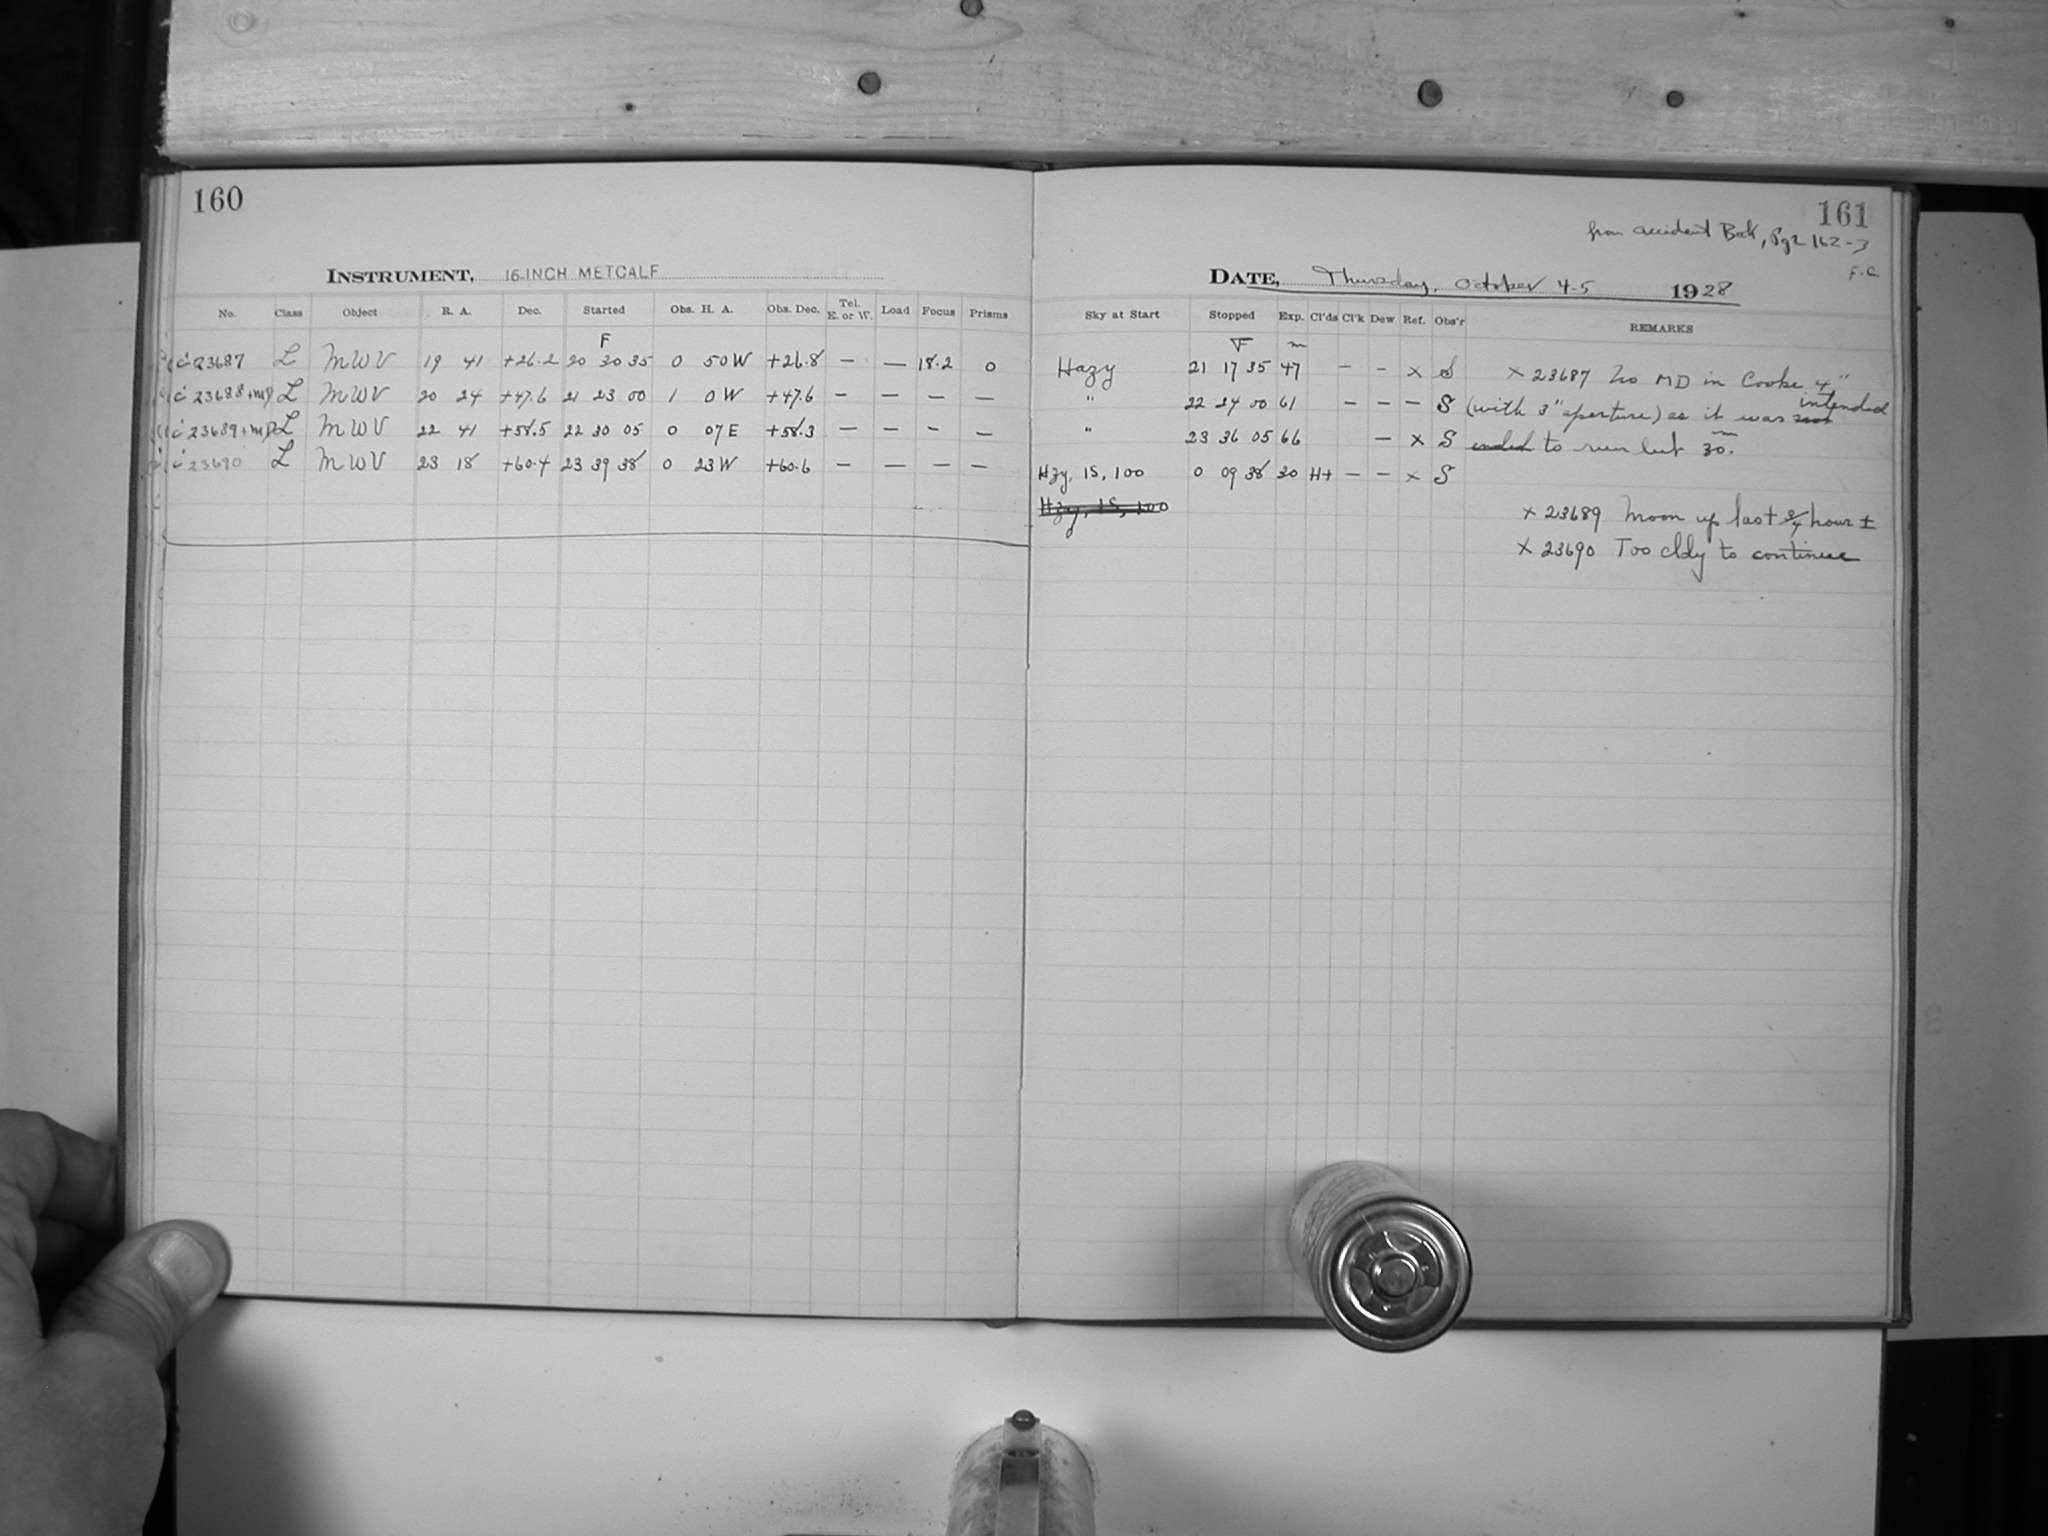 160
INSTRUMENT, 16-INCH METCALF
No. Class Object R. A. Dec. Started Obs. H. A. Obs. Dec. Tel. E. or W. Load Focus Prisms
F
23687 L MWV 19 41 +26.2 20 30 35 0 50W +26.8 — — 18.2 0
23688 L MWV 20 24 +47.6 21 23 00 1 0W +47.6 — — — —
23689 L MWV 22 41 +58.5 22 30 05 0 07E +58.3 — — — —
23690 L MWV 23 18 +60.4 23 39 38 0 23W +60.6 — — — —
161
from accident Book, Pgs 162-3
F.C
DATE, Thursday, October 4-5 1928
Sky at Start Stopped Exp. Cl'ds Cl'k Dew Ref. Obs'r REMARKS
F m
Hazy 21 17 35 47 — — x S x 23687 No MD in Cooke 4"
" 22 24 00 61 — — — S (with 3" aperture) as it was intended
" 23 36 05 66 — x S ended to run but 30m.
Hzy, 1S, 100 0 09 38 30 H+ — — x S
Hzy, 1S, 100 x 23689 Moon up last 3/4 hour ±
x 23690 Too cldy to continue